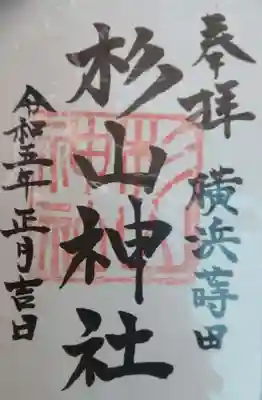 奉拝
横浜蒔田
杉山神社
令和五年正月吉日